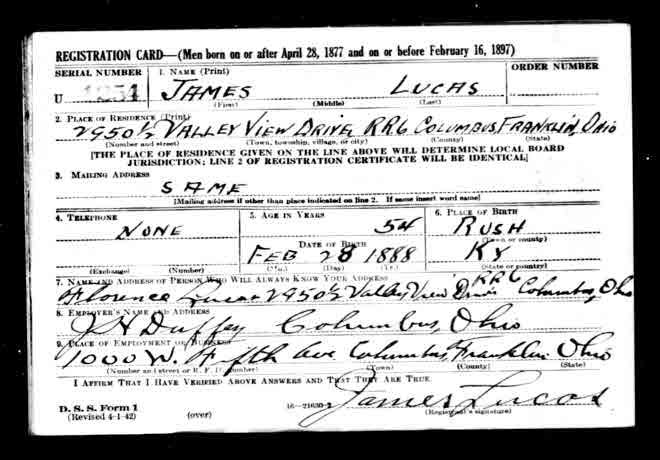 REGISTRATION CARD—(Men born on or after April 28, 1877 and on or before February 16, 1897)
SERIAL NUMBER 1. NAME (Print) ORDER NUMBER
U 1254 JAMES LUCAS
(First) (Middle) (Last)
2. PLACE OF RESIDENCE (Print)
2950½ VALLEY VIEW DRIVE RR6 COLUMBUS, FRANKLIN, OHIO
(Number and street) (Town, township, village, or city) (County) (State)
[THE PLACE OF RESIDENCE GIVEN ON THE LINE ABOVE WILL DETERMINE LOCAL BOARD
JURISDICTION; LINE 2 OF REGISTRATION CERTIFICATE WILL BE IDENTICAL]
3. MAILING ADDRESS
SAME
[Mailing address if other than place indicated on line 2. If same insert word same]
4. TELEPHONE 5. AGE IN YEARS 6. PLACE OF BIRTH
NONE 54 RUSH
(Town or county)
DATE OF BIRTH
FEB 28 1888 KY
(Exchange) (Number) (Mo.) (Day) (Yr.) (State or country)
7. NAME AND ADDRESS OF PERSON WHO WILL ALWAYS KNOW YOUR ADDRESS
Florence Lucas 2950½ Valley View Drive RR6 Columbus, Ohio
8. EMPLOYER'S NAME AND ADDRESS
J H Duffey Columbus, Ohio
9. PLACE OF EMPLOYMENT OR BUSINESS
1000 W. Fifth Ave Columbus, Franklin Ohio
(Number and street or R. F. D. number) (Town) (County) (State)
I AFFIRM THAT I HAVE VERIFIED ABOVE ANSWERS AND THAT THEY ARE TRUE.
D. S. S. Form 1
(Revised 4-1-42) (over) 16—21630-2 James Lucas
(Registrant's signature)